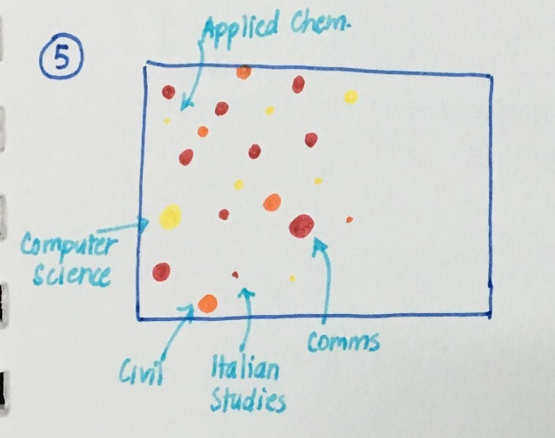 5
Applied Chem.
Computer
Science
Civil
Italian
Studies
Comms